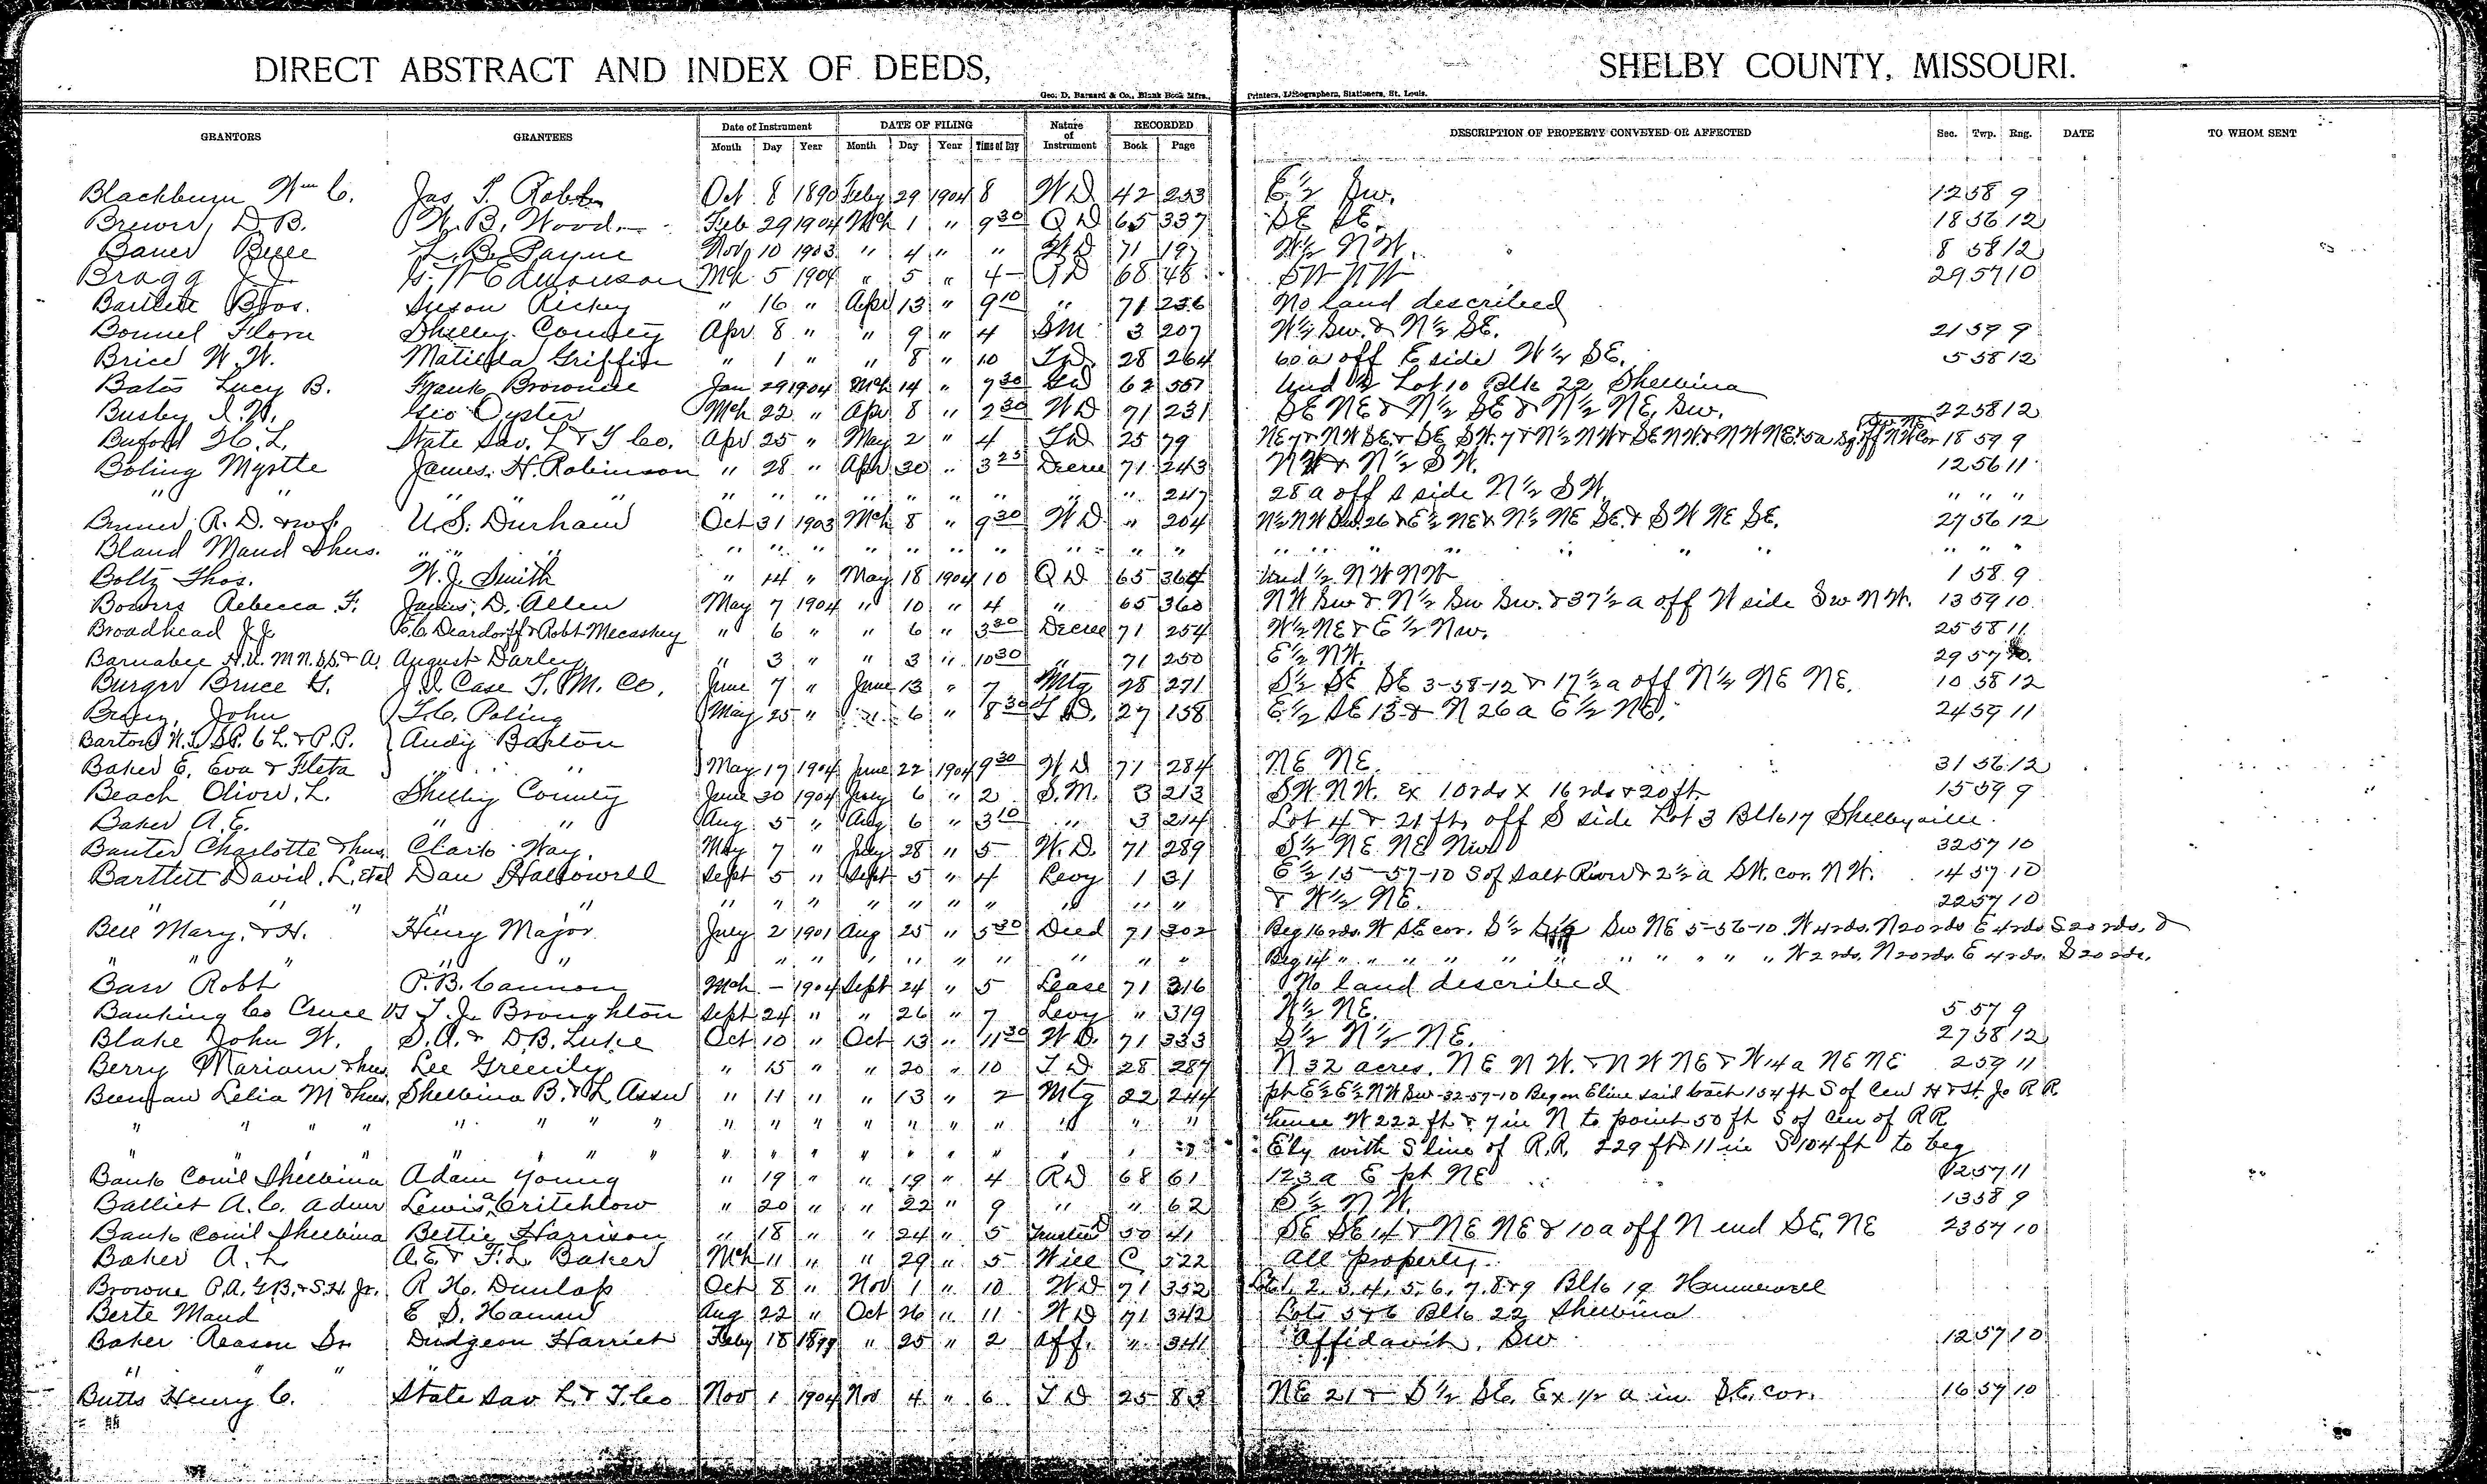 DIRECT ABSTRACT AND INDEX OF DEEDS, SHELBY COUNTY, MISSOURI.
Geo. D. Barnard & Co., Blank Book Mfrs., Printers, Lithographers, Stationers, St. Louis.
GRANTORS GRANTEES Date of Instrument DATE OF FILING Nature of Instrument RECORDED DESCRIPTION OF PROPERTY CONVEYED OR AFFECTED Sec. Twp. Rng. DATE TO WHOM SENT
Month Day Year Month Day Year Time of Day Book Page
Blackburn Wm C. Jas T. Oct 8 1890 Feby 29 1904 8 WD 42 253 E ½ Sw. 12 58 9
Brewer, D.B. W.B. Wood Feb 29 1904 Mch 1 " 9 30 QD 65 337 SE SE. 18 56 12
Bauer Belle L.B. Payne Nov 10 1903 " 4 " " WD 71 197 W½ NW. 8 58 12
Bragg J.J. Edmonson Mch 5 1904 " 5 " 4 68 48 SW NW 29 57 10
Bartlett Bros. Rickey " 16 " Apr 13 " 9 10 " 71 236 No land described
Bonnel Flora Shelby County Apr 8 " " 9 " 4 SM 3 207 W½ Sw. & N½ SE. 21 59 9
Brice W.W. Matilda Griffin " 1 " " 8 " 10 TD. 28 264 60 a off E side W½ SE. 5 58 12
Bates Lucy B. Frank Brownlee Jan 29 1904 Mch 14 " 7 30 62 551 Und ½ Lot 10 Blk 22 Shelbina
Busby Geo Oyster Mch 22 " Apr 8 " 2 30 WD 71 231 SE NE & N½ SE & N½ NE, Sw. 22 58 12
Buford H.L. State Sav. L & T Co. Apr 25 " May 2 " 4 TD 25 79 NE 7 & NW SE & SE SW. 7 & N½ NW & SE NW & NW NE & 5a Sq off NW Cor 18 59 9
Boling Myrtle James. H. Robinson " 28 " Apr 30 " 3 25 Decree 71 243 NW & N½ SW. 12 56 11
" " " " " " " " " " " " " " 247 28 a off S side N½ SW. " " "
R.D. & wf. U.S. Durham Oct 31 1903 Mch 8 " 9 30 WD " 204 N½ NW Sw. 26 & E½ NE & N½ NE SE. & SW NE SE. 27 56 12
Bland Maud & hus. " " " " " " " " " " " " " " " " " " " " " "
Boltz Thos. W.J. Smith " 14 " May 18 1904 10 QD 65 364 Und ½ NW NW 1 58 9
Bowers Rebecca F. James. D. Allen May 7 1904 " 10 " 4 " 65 360 NW Sw & N½ Sw Sw. & 37½ a off W side Sw NW. 13 59 10
Broadhead J.J. E.C. Deardorff & Robt Mecaskey " 6 " " 6 " 3 30 Decree 71 254 W½ NE & E½ Nw. 25 58 11
Barnabee August Darley " 3 " " 3 " 10 30 " 71 250 E½ NW. 29 57 10
Burger Bruce G. J.I. Case T.M. Co. June 7 " June 13 " 7 Mtg 28 271 S½ SE SE 3-58-12 & 17½ a off N½ NE NE. 10 58 12
John T.C. Poling May 25 " " 6 " 8 30 TD. 27 158 E½ SE 13 & N 26 a E½ NE. 24 59 11
Barton & P.P. Andy Barton
Baker E. Eva & Fleta " " May 17 1904 June 22 1904 9 30 WD 71 284 NE NE. 31 56 12
Beach Oliver, L. Shelby County June 30 1904 July 6 " 2 S.M. 3 213 SW NW. Ex 10 rds X 16 rds & 20 ft. 15 59 9
Baker A.E. " " Aug 5 " Aug 6 " 3 10 " 3 214 Lot 4 & 21 ft. off S side Lot 3 Blk 17 Shelbyville.
Banter Charlotte & hus Clark Way. May 7 " July 28 " 5 W.D. 71 289 S½ NE NE Nw 32 57 10
Bartlett David. L. et al Dan Hallowell Sept 5 " Sept 5 " 4 Levy 1 31 E½ 15-57-10 S of Salt River & 2½ a SW. cor. NW. 14 57 10
" " " " " " " " " " " " " " & W½ NE. 22 57 10
Bell Mary, & H. Henry Major July 2 1901 Aug 25 " 5 30 Deed 71 302 Beg 16 rds. W SE cor. S½ Sw NE 5-56-10. W 4 rds. N 20 rds E 4 rds S 20 rds. &
" " " " " " " " " " " " " " Beg 14 " " " " " " " " " " W 2 rds. N 20 rds. E 4 rds. S 20 rds.
Barr Robt P.B. Cannon Mch - 1904 Sept 24 " 5 Lease 71 316 No land described
Banking Co Cruce vs T.J. Broughton Sept 24 " " 26 " 7 Levy " 319 N½ NE. 5 57 9
Blake John W. S.A. & D.B. Luke Oct 10 " Oct 13 " 11 30 WD. 71 333 S½ N½ NE. 27 58 12
Berry Mariam & hus Lee Greenly " 15 " " 20 " 10 TD 28 287 N 32 acres. NE NW. & NW NE & W 14 a NE NE 2 59 11
Lelia M & hus, Shelbina B. & L Assn " 11 " " 13 " 2 Mtg 22 244 pt E½ E½ NW Sw-32-57-10 Beg on E line said tract 154 ft S of Cen H & St. Jo R R
" " " " " " " " " " " " " " " " " " thence W 222 ft & 7 in N to point 50 ft S of Cen of R R
" " " " " " " " " " " " " " " " " Ely with S line of R.R. 229 ft & 11 in S 104 ft to beg
Bank Coml Shelbina Adam Young " 19 " " 19 " 4 RD 68 61 123 a E pt NE 12 57 11
Balliet A.C. admr Lewis Critchlow " 20 " " 22 " 9 " " 62 S½ NW. 13 58 9
Bank Coml Shelbina Bettie Harrison " 18 " " 24 " 5 Trustee D 50 41 SE SE 14 & NE NE & 10 a off N end SE. NE 23 57 10
Baker A.L. A.E. & F.L. Baker Mch 11 " " 29 " 5 Will C 522 All property.
Browne P.A. G.B. & S.H. Jr. R H. Dunlap Oct 8 " Nov 1 " 10 WD 71 352 Lot 1, 2, 3, 4, 5, 6, 7, 8 & 9 Blk 19 Hunnewell
Berte Maud E S. Hamm Aug 22 " Oct 26 " 11 WD 71 342 Lots 5 & 6 Blk 22 Shelbina
Baker Reason Sr Dudgeon Harriet Feby 18 1899 " 25 " 2 Aff. " 341 Affidavit, Sw 12 57 10
" " " "
Butts Henry C. State Sav L & T. Co Nov 1 1904 Nov 4 " 6 TD 25 83 NE 21 & S½ SE. Ex ½ a in S.E. cor. 16 57 10